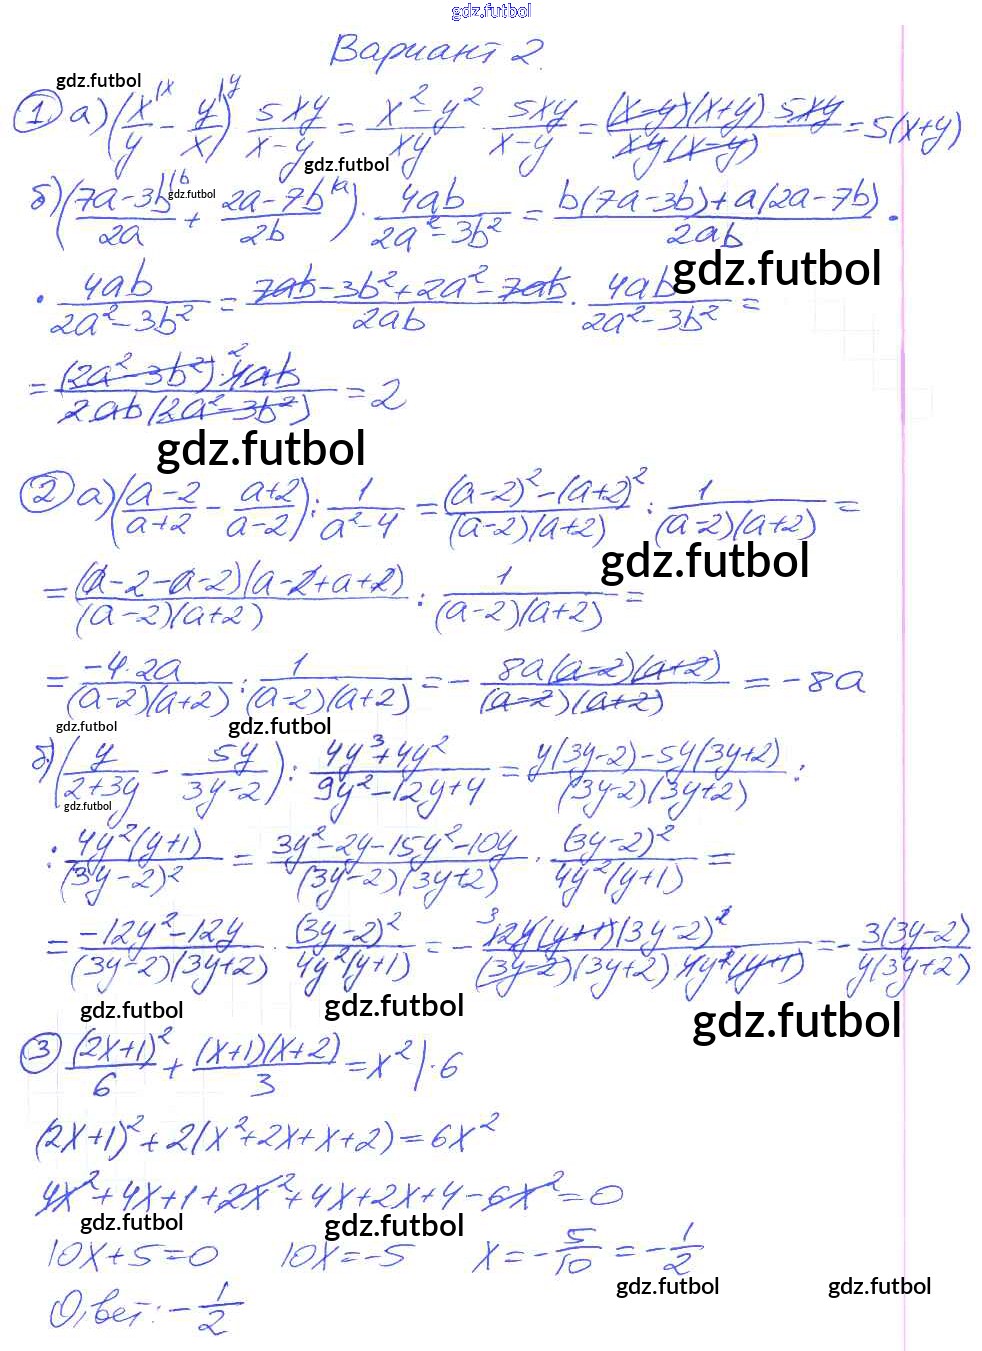 gdz.futbol
Вариант 2.
gdz.futbol
① а) (x/y |x − y/x |y) 5xy/(x−y) = (x²−y²)/(xy) · 5xy/(x−y) = ((x−y)(x+y) 5xy)/(xy(x−y)) = 5(x+y)
gdz.futbol
gdz.futbol
б) ((7a−3b)/(2a) |b + (2a−7b)/(2b) |a) · 4ab/(2a²−3b²) = (b(7a−3b)+a(2a−7b))/(2ab) ·
gdz.futbol
· 4ab/(2a²−3b²) = (7ab−3b²+2a²−7ab)/(2ab) · 4ab/(2a²−3b²) =
= ((2a²−3b²)·4ab ²)/(2ab(2a²−3b²)) = 2
gdz.futbol
② а) ((a−2)/(a+2) − (a+2)/(a−2)) : 1/(a²−4) = ((a−2)²−(a+2)²)/((a−2)(a+2)) : 1/((a−2)(a+2)) =
gdz.futbol
= ((a−2−a−2)(a−2+a+2))/((a−2)(a+2)) : 1/((a−2)(a+2)) =
= (−4·2a)/((a−2)(a+2)) : 1/((a−2)(a+2)) = − (8a(a−2)(a+2))/((a−2)(a+2)) = −8a
gdz.futbol gdz.futbol
б) (y/(2+3y) − 5y/(3y−2)) : (4y³+4y²)/(9y²−12y+4) = (y(3y−2)−5y(3y+2))/((3y−2)(3y+2)) :
gdz.futbol
: (4y²(y+1))/((3y−2)²) = (3y²−2y−15y²−10y)/((3y−2)(3y+2)) · ((3y−2)²)/(4y²(y+1)) =
= (−12y²−12y)/((3y−2)(3y+2)) · ((3y−2)²)/(4y²(y+1)) = − (³12y(y+1)(3y−2)²)/((3y−2)(3y+2) 4y²(y+1)) = − (3(3y−2))/(y(3y+2))
gdz.futbol gdz.futbol gdz.futbol
③ ((2x+1)²)/6 + ((x+1)(x+2))/3 = x² | · 6
(2x+1)² + 2(x²+2x+x+2) = 6x²
4x²+4x+1+2x²+4x+2x+4−6x²=0
gdz.futbol gdz.futbol
10x+5=0 10x=−5 x=−5/10=−1/2
gdz.futbol gdz.futbol
Ответ: −1/2